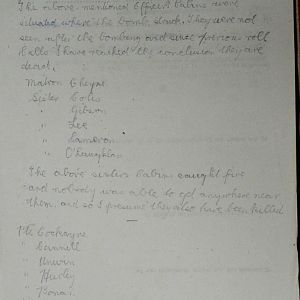 The above mentioned Officers Cabins were
situated where the bomb struck. They were not
seen after the bombing and since various roll
Calls I have reached the conclusion they are
dead.
Matron Cheyne
Sister Cows
" Gibson
" Lee
" Cameron
" O'Laughlan
The above sisters Cabins caught fire
and nobody was able to get anywhere near
them, and so I presume they also have been killed
Pte Cockayne
" Cannell
" Unwin
" Hurley
" Bonar